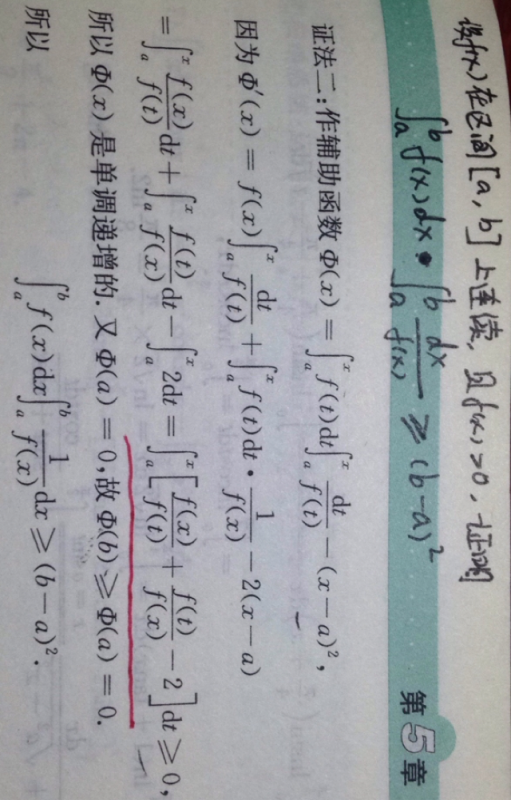 设f(x)在区间[a,b]上连续,且f(x)>0,证明
∫_a^b f(x)dx·∫_a^b dx/f(x) ≥ (b-a)²
第5章
证法二:作辅助函数 Φ(x)=∫_a^x f(t)dt∫_a^x dt/f(t)-(x-a)²,
因为 Φ′(x)=f(x)∫_a^x dt/f(t)+∫_a^x f(t)dt·1/f(x)-2(x-a)
=∫_a^x f(x)/f(t)dt+∫_a^x f(t)/f(x)dt-∫_a^x 2dt=∫_a^x[f(x)/f(t)+f(t)/f(x)-2]dt≥0,
所以 Φ(x)是单调递增的.又 Φ(a)=0,故 Φ(b)≥Φ(a)=0.
所以 ∫_a^b f(x)dx∫_a^b 1/f(x)dx≥(b-a)².